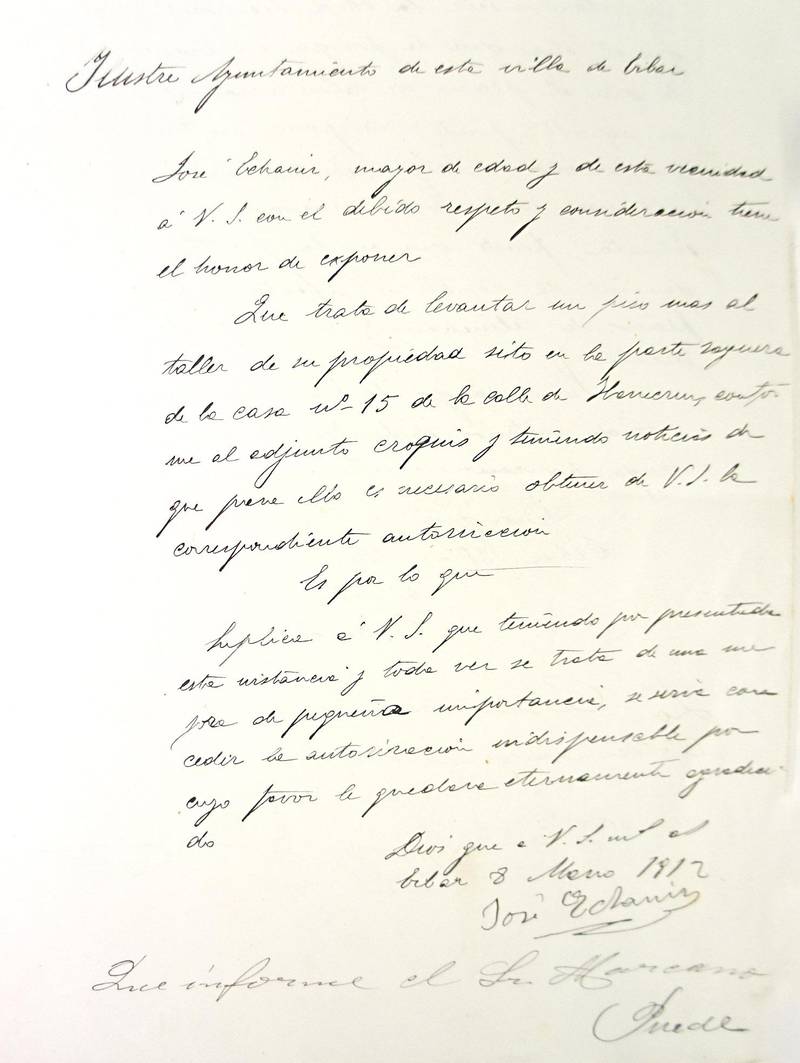 Ilustre Ayuntamiento de esta villa de Eibar
José Echaniz, mayor de edad y de esta vecindad
á V. S. con el debido respeto y consideracion tiene
el honor de exponer
Que trata de levantar un piso mas al
taller de su propiedad sito en la parte zaguera
de la casa nº 15 de la calle de confor
me al adjunto croquis y teniendo noticias de
que para ello es necesario obtener de V. S. la
correspondiente autorizacion
Es por lo que
Suplica á V. S. que teniendo por presentada
esta instancia y toda vez se trata de una me
jora de pequeña importancia, se sirva con
ceder la autorizacion indispensable por
cuyo favor le quedara eternamente agradeci
do
Dios gue á V. S. ms as
Eibar 8 1912
José Echaniz
Que informe el Sr.